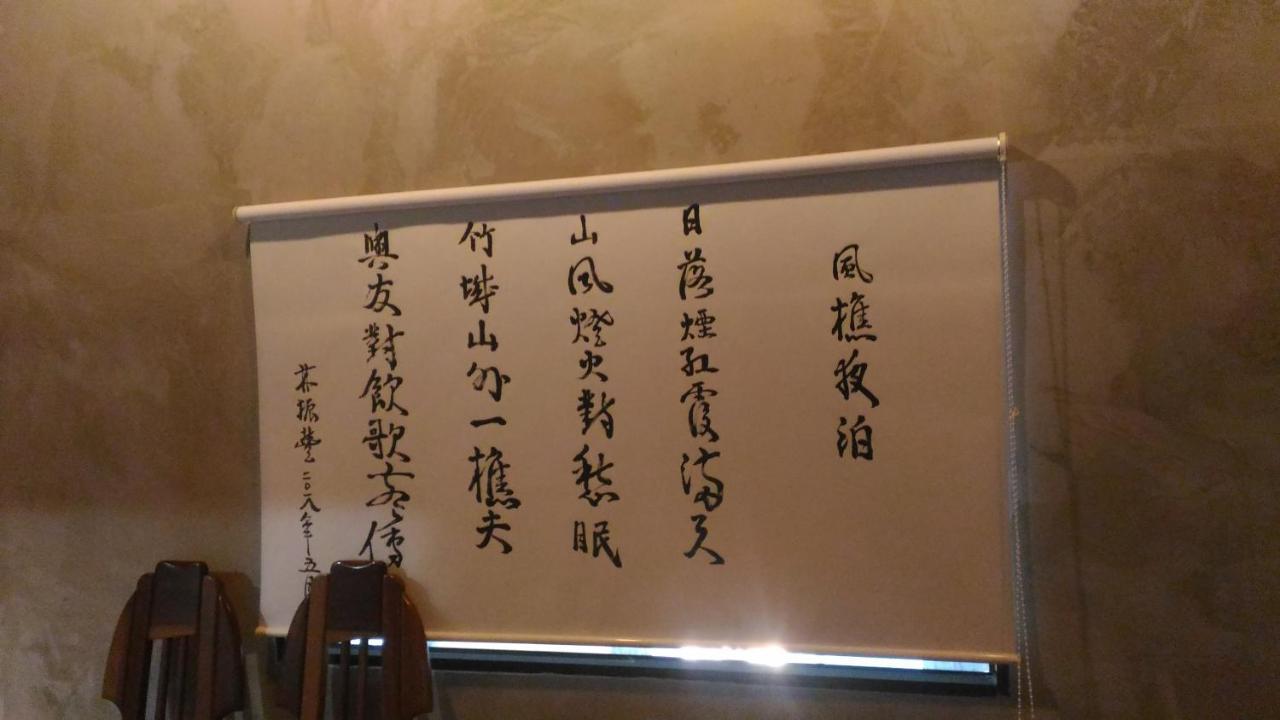 風樵夜泊
日落煙紅霞滿天
山風燈火對愁眠
竹城山外一樵夫
與友對飲歌寄情
林振豐二〇一八年五月